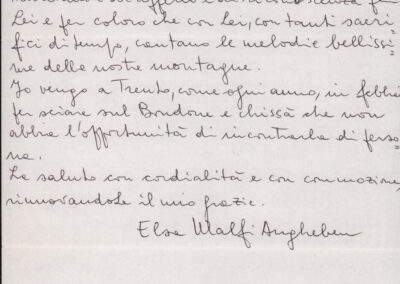 Lei e per coloro che con Lei, con tanti sacri=
fici di tempo, cantano le melodie bellissi=
me delle nostre montagne.
Io vengo a Trento, come ogni anno, in febbraio
per sciare sul Bondone e chissà che non
abbia l'opportunità di incontrarla di perso=
na.
La saluto con cordialità e con commozione,
rinnovandole il mio grazie.
Elsa Malfi Angheben